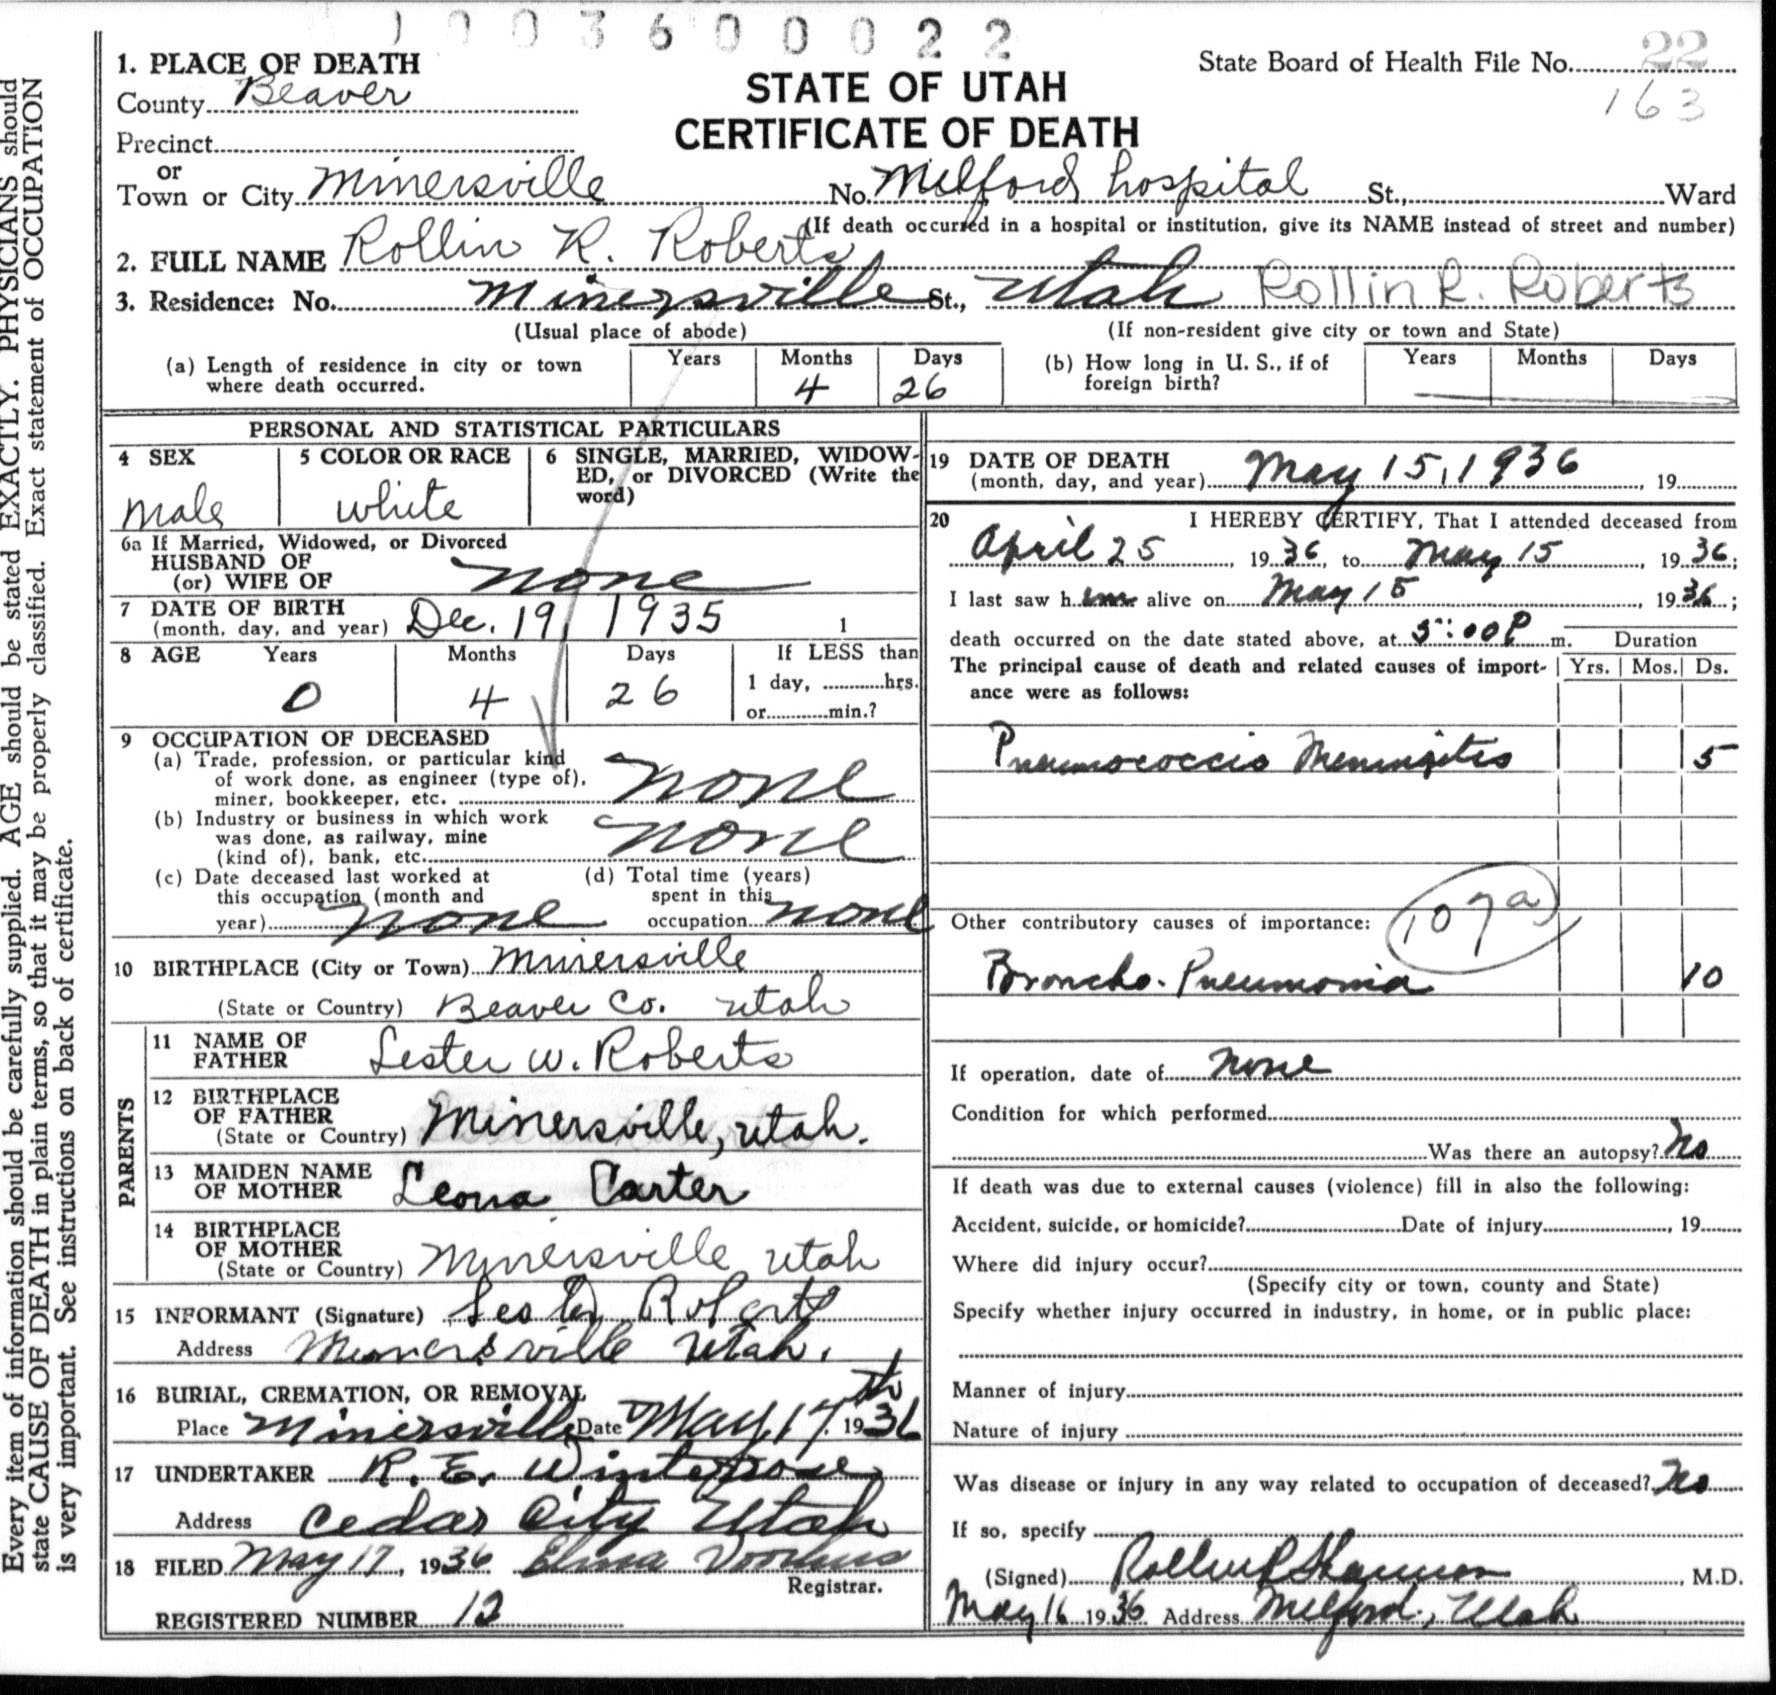 1 0 0 3 6 0 0 0 2 2
1. PLACE OF DEATH
County Beaver
Precinct
or
Town or City Minersville No. Milford hospital St., Ward
(If death occurred in a hospital or institution, give its NAME instead of street and number)
STATE OF UTAH
CERTIFICATE OF DEATH
State Board of Health File No. 22
163
2. FULL NAME Rollin R. Roberts
3. Residence: No. Minersville St., Utah Rollin R. Roberts
(Usual place of abode) (If non-resident give city or town and State)
(a) Length of residence in city or town where death occurred. Years Months 4 Days 26
(b) How long in U. S., if of foreign birth? Years Months Days
PERSONAL AND STATISTICAL PARTICULARS
4 SEX male
5 COLOR OR RACE white
6 SINGLE, MARRIED, WIDOWED, or DIVORCED (Write the word)
6a If Married, Widowed, or Divorced
HUSBAND OF
(or) WIFE OF none
7 DATE OF BIRTH
(month, day, and year) Dec. 19, 1935
1
8 AGE Years 0 Months 4 Days 26 If LESS than
1 day, hrs.
or min.?
9 OCCUPATION OF DECEASED
(a) Trade, profession, or particular kind
of work done, as engineer (type of),
miner, bookkeeper, etc. none
(b) Industry or business in which work
was done, as railway, mine
(kind of), bank, etc. none
(c) Date deceased last worked at
this occupation (month and
year) none
(d) Total time (years)
spent in this
occupation none
10 BIRTHPLACE (City or Town) Minersville
(State or Country) Beaver Co. Utah
PARENTS
11 NAME OF
FATHER Lester W. Roberts
12 BIRTHPLACE
OF FATHER
(State or Country) Minersville, Utah.
13 MAIDEN NAME
OF MOTHER Leona Carter
14 BIRTHPLACE
OF MOTHER
(State or Country) Minersville Utah
15 INFORMANT (Signature) Lester Roberts
Address Minersville Utah.
16 BURIAL, CREMATION, OR REMOVAL
Place Minersville Date May 17th 1936
17 UNDERTAKER R. E. Winterrose
Address Cedar City Utah
18 FILED May 17, 1936 Elma Voorhees
Registrar.
REGISTERED NUMBER 12
19 DATE OF DEATH
(month, day, and year) May 15, 1936, 19
20 I HEREBY CERTIFY, That I attended deceased from
April 25, 1936, to May 15, 1936;
I last saw him alive on May 15, 1936;
death occurred on the date stated above, at 5:00 P m. Duration
The principal cause of death and related causes of importance were as follows: Yrs. Mos. Ds.
Pneumococcic Meningitis 5
Other contributory causes of importance: 107a
Broncho-Pneumonia 10
If operation, date of none
Condition for which performed
Was there an autopsy? No
If death was due to external causes (violence) fill in also the following:
Accident, suicide, or homicide? Date of injury, 19
Where did injury occur?
(Specify city or town, county and State)
Specify whether injury occurred in industry, in home, or in public place:
Manner of injury
Nature of injury
Was disease or injury in any way related to occupation of deceased? No
If so, specify
(Signed) Rollin R Shannon, M.D.
May 16 1936 Address Milford, Utah
Every item of information should be carefully supplied. AGE should be stated EXACTLY. PHYSICIANS should
state CAUSE OF DEATH in plain terms, so that it may be properly classified. Exact statement of OCCUPATION
is very important. See instructions on back of certificate.